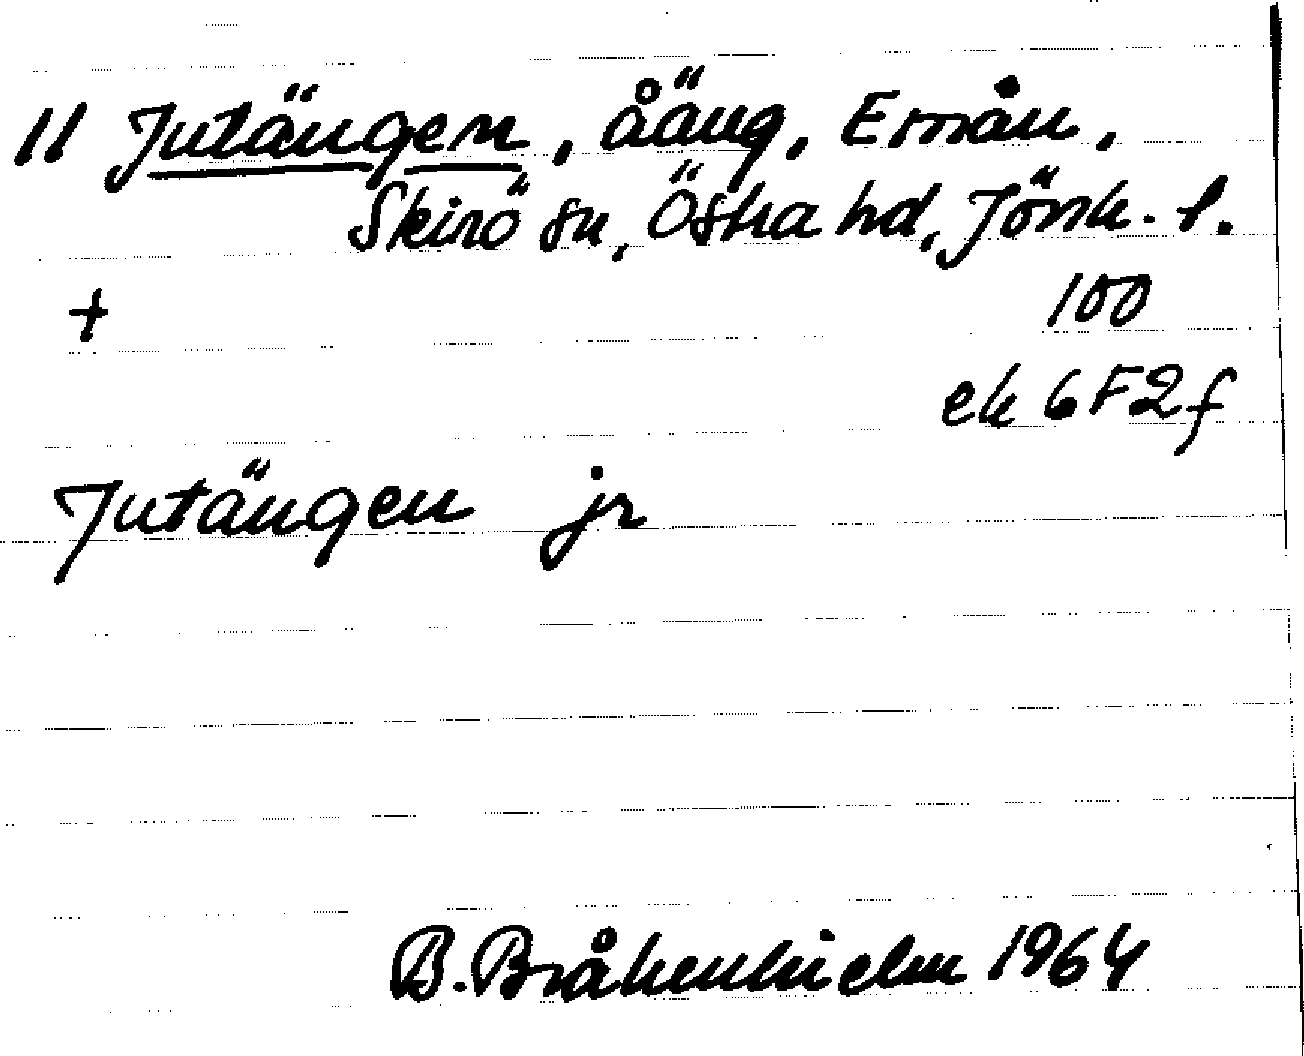 11 Jutängen, åäng, Emån,
Skirö sn, Östra hd, Jönk. l.
+ 100
ek 6F2f
Jutängen jr
B. Bråkenhielm 1964